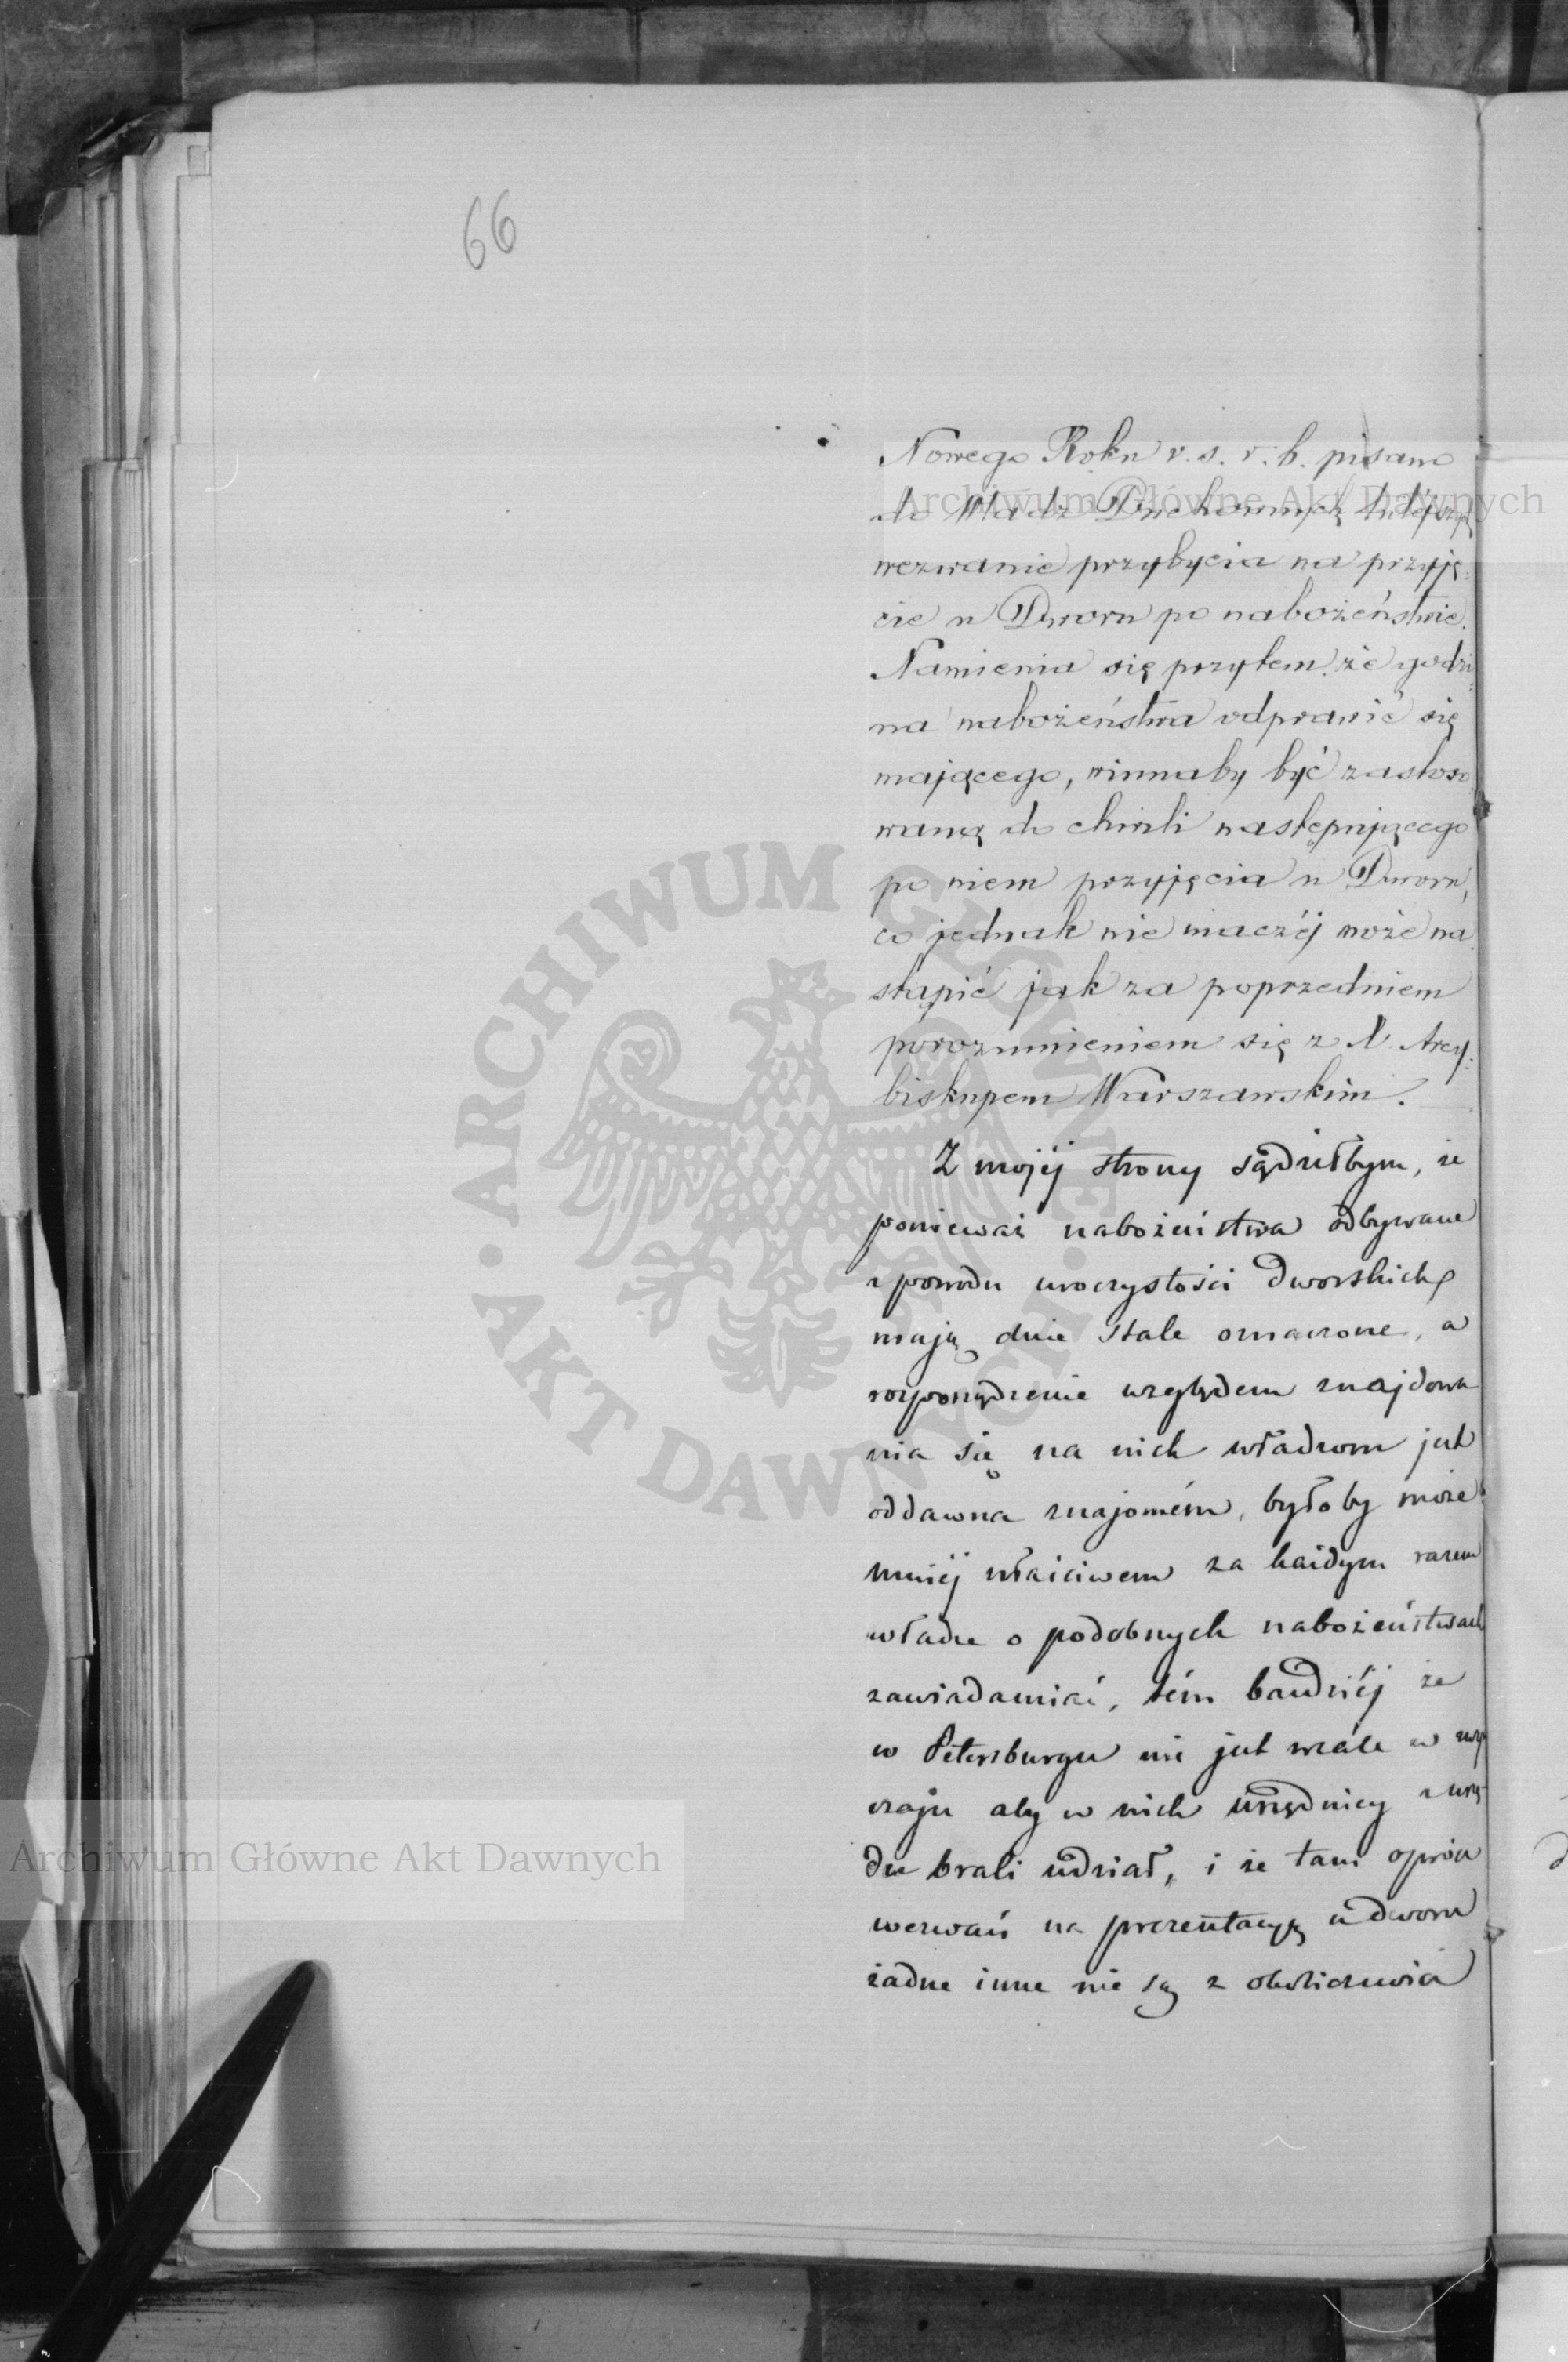 66
Nowego Roku v. s. r. b. pisano
do Władz Duchownych tutejszych
wezwanie przybycia na przyję:
cie u Dworu po nabożeństwie.
Namienia się przytem że godzi:
na nabożeństwa odprawić się
mającego, winnaby być zastoso
waną do chwili następującego
po niem przyjęcia u Dworu,
co jednak nie inaczéj może na
stąpić jak za poprzedniem
porozumieniem się z X. Arcy:
biskupem Warszawskim.
Z mojéj strony sądziłbym, że
ponieważ nabożeństwa odbywane
z powodu uroczystości Dworskich
mają dnie stale oznaczone, a
rozporządzenie względem znajdowa
nia się na nich władzom jest
oddawna znajomém, byłoby może
mniéj właściwem za każdym razem
władze o podobnych nabożeństwach
zawiadamiać, tém bardziéj że
w Petersburgu nie jest wcale w zwy
czaju aby w nich urzędnicy z urzę-
du brali udział, i że tam oprócz
wezwań na prezentacyę u Dworu
żadne inne nie są z
Archiwum Główne Akt Dawnych
ARCHIWUM GŁÓWNE AKT DAWNYCH
Archiwum Główne Akt Dawnych